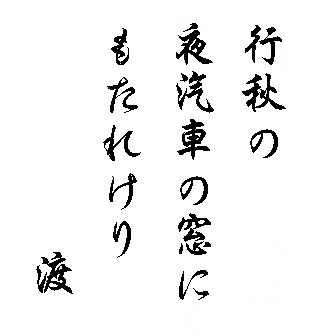 行秋の
夜汽車の窓に
もたれけり
渡